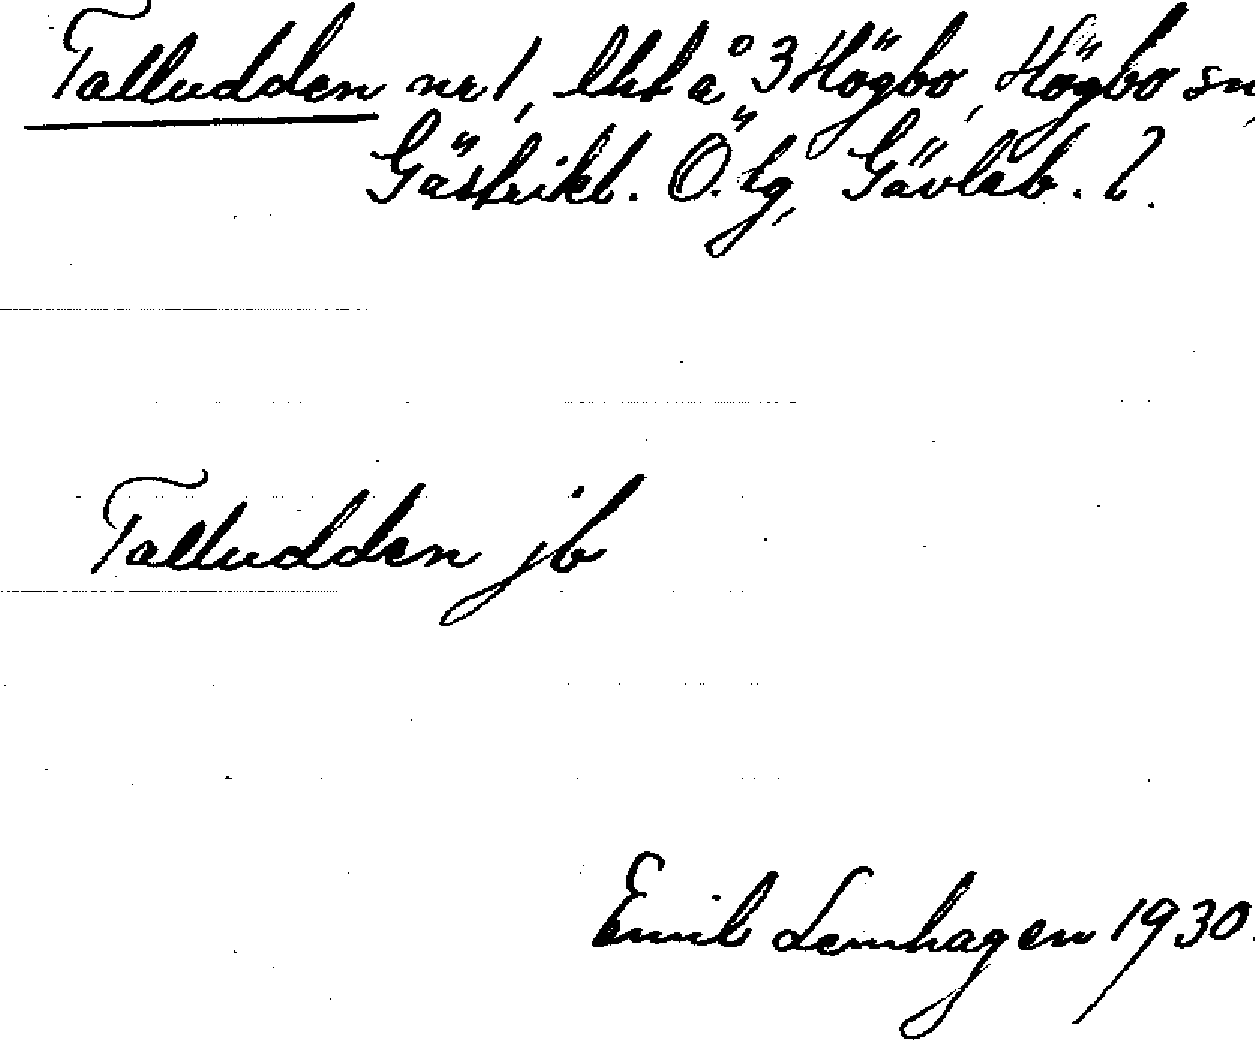 Talludden nr 1, lht å 3 Högbo, Högbo sn,
Gästrikl. Ö. tg, Gävleb. l.
Talludden jb
Emil Lemhagen 1930.